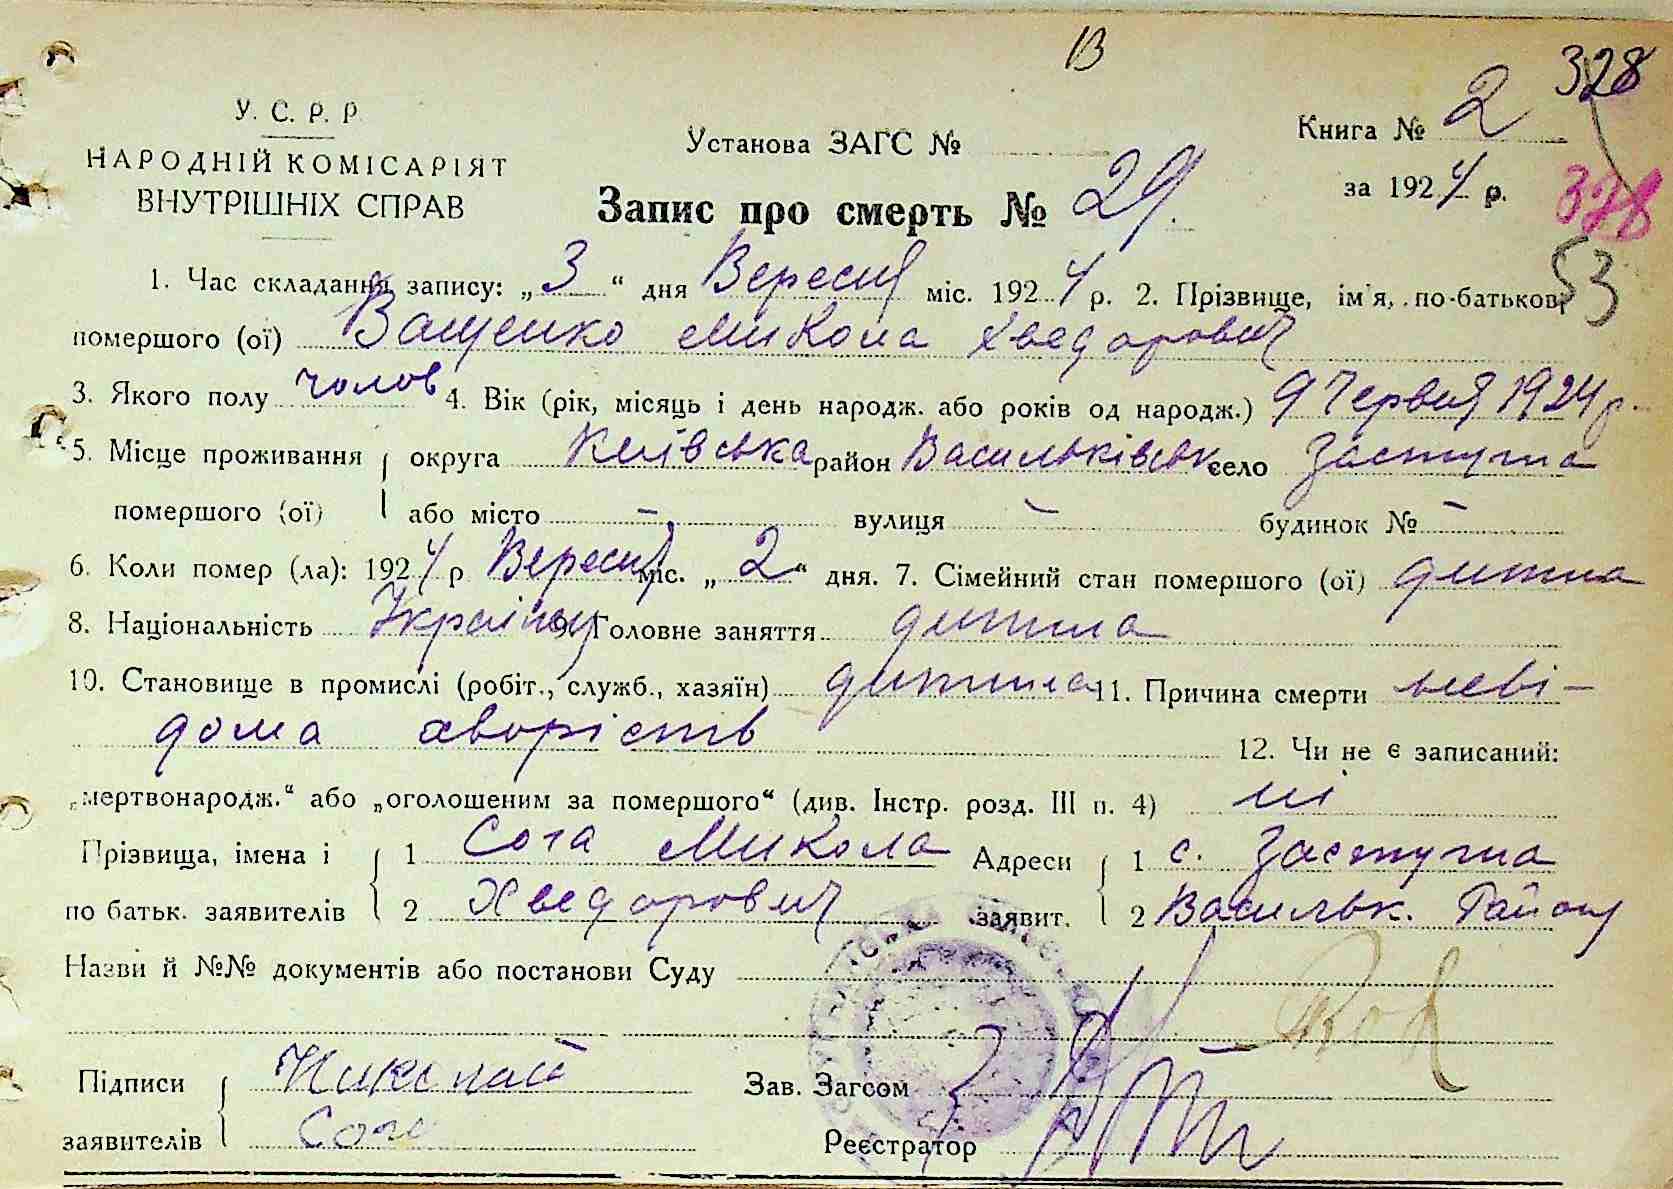 В
328
У. С. Р. Р.
НАРОДНІЙ КОМІСАРІЯТ
ВНУТРІШНІХ СПРАВ
Установа ЗАГС №
Книга № 2
за 1924 р.
328
Запис про смерть № 29.
53
1. Час складання запису: „3“ дня Вересня міс. 1924 р. 2. Прізвище, ім'я, по-батькові
помершого (ої) Ващенко Микола Хведорович
3. Якого полу чолов 4. Вік (рік, місяць і день народж. або років од народж.) 9 Червня 1924 р.
5. Місце проживання округа Київська район Васильківськ село Застугна
помершого (ої) або місто - , вулиця - будинок № -
6. Коли помер (ла): 1924 р Вересня міс. „2“ дня. 7. Сімейний стан помершого (ої) дитина
8. Національність Українц 9. Головне заняття дитина
10. Становище в промислі (робіт., служб., хазяїн) дитина 11. Причина смерти неві-
дома хворість 12. Чи не є записаний:
„мертвонародж.“ або „оголошеним за помершого“ (див. Інстр. розд. III п. 4) ні
Прізвища, імена і 1 Сога Микола Адреси 1 с. Застугна
по батьк. заявителів 2 Хведорович заявит. 2 Васильк. Району
Назви й №№ документів або постанови Суду
Підписи Николай Зав. Загсом
заявителів Сога Реєстратор